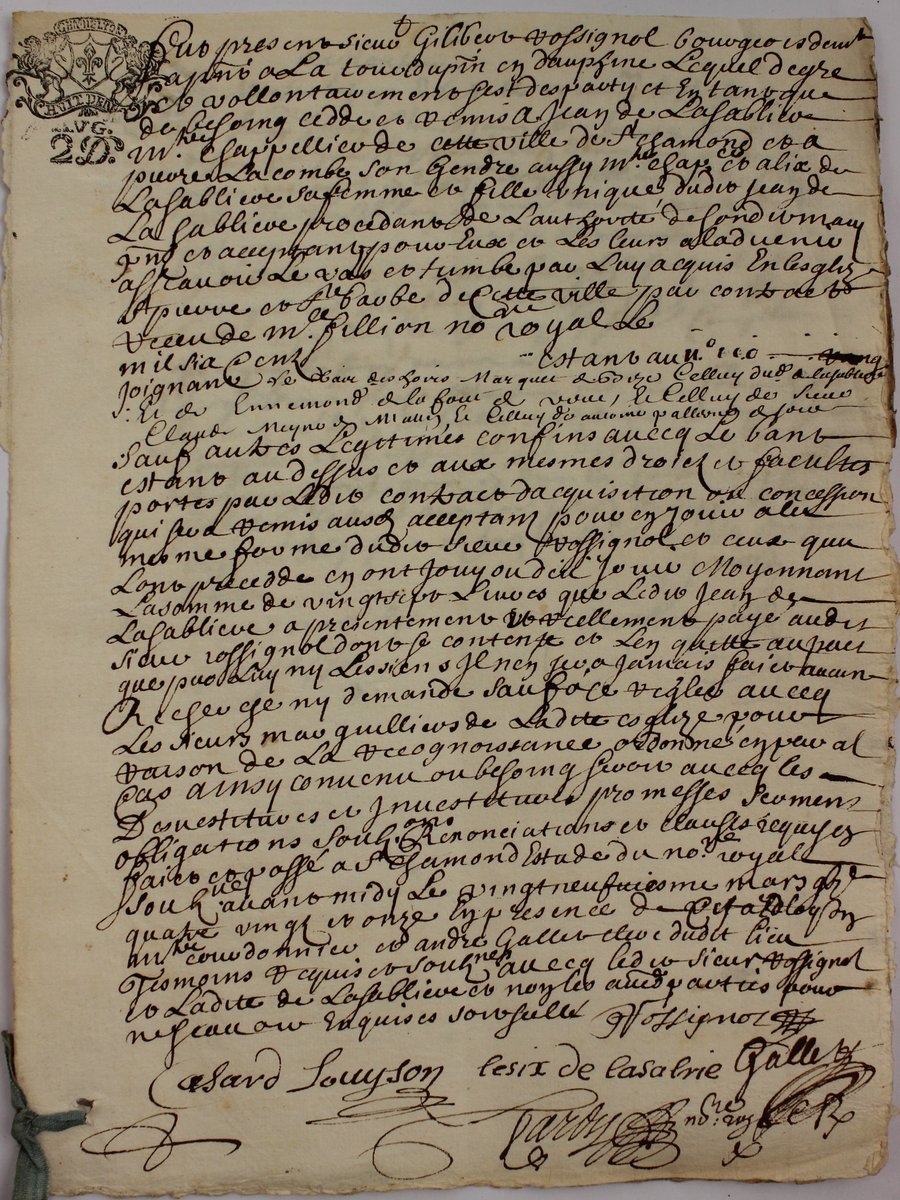 GEN DE LYON
HUIT DEN
AVG.
2 D.
Fut present sieur Gilibert Rossignol bourgeois demt
a pnt a La tour dupin en dauphine Lequel de gre
et vollontairement sest desparty et En tant que
de besoing cedde et Remis a Jean de Lasabliere
mre chappellier de cette ville de St chamond et a
pierre Lacombe son Gendre aussy mre chap et alix de
Lasabliere sa femme et fille unique dudit Jean de
La Sabliere procedant de L'authorité de son dit mary
pnt et acceptant pour Eux et Les leurs a ladvenir
assavoir Le vas et tumbe par Luy acquis En lesglize
St pierre et Ste barbe de Cette ville par contact
Receu de me fillion nore royal Le
mil six Cent estant au no 110
Joignant Le des hoirs Marquet de Celluy dud de lasabliere
Et de Ennemond de la de Le Celluy de sieur
Claude Meyne Le Celluy de antoine de
Sauf autres Legitimes confins avecq Le bant
estant au dessus et aux mesmes droict et facultes
portes par Ledit contract dacquisition ou concession
qui sera Remis ausd acceptant pour en Jouir a la
mesme forme dudit sieur Rossignol et ceux quy
Lont precedde en ont Jouy ou deu jouir Moyennant
La somme de vingt sept Livres que Ledit Jean de
Lasabliere a presentement et reellement payé audit
sieur rossignol dont se contente et Len quitte au pact
que par Luy ny Les siens Il n'en sera Jamais faict aucun
Recherche ny demande Sauf a se Regler avecq
Les sieurs marguilliers de Ladite esglize pour
Raison de La Recognoissance ordonné en par al
Cas Ainsy convenu ou besoing seroit avecq les
Desvestitures et Investitures promesses sermens
obligations soubons Renonciations et clauses requizes
faict et passé a St chamond Estude du nore royal
soubne avant midy Le vingt neufuiesme mars
quatre vingt et onze En presence de
mre courdonnier et andre Gallet clerc dudit lieu
Tesmoins Requis et soubnes avecq ledit sieur Rossignol
et Ladite de Lasabliere et non les autres parties pour
ne scavoir Enquises sommes Rossignol
Louyson de lasablie Gallet
Tardy nore roy